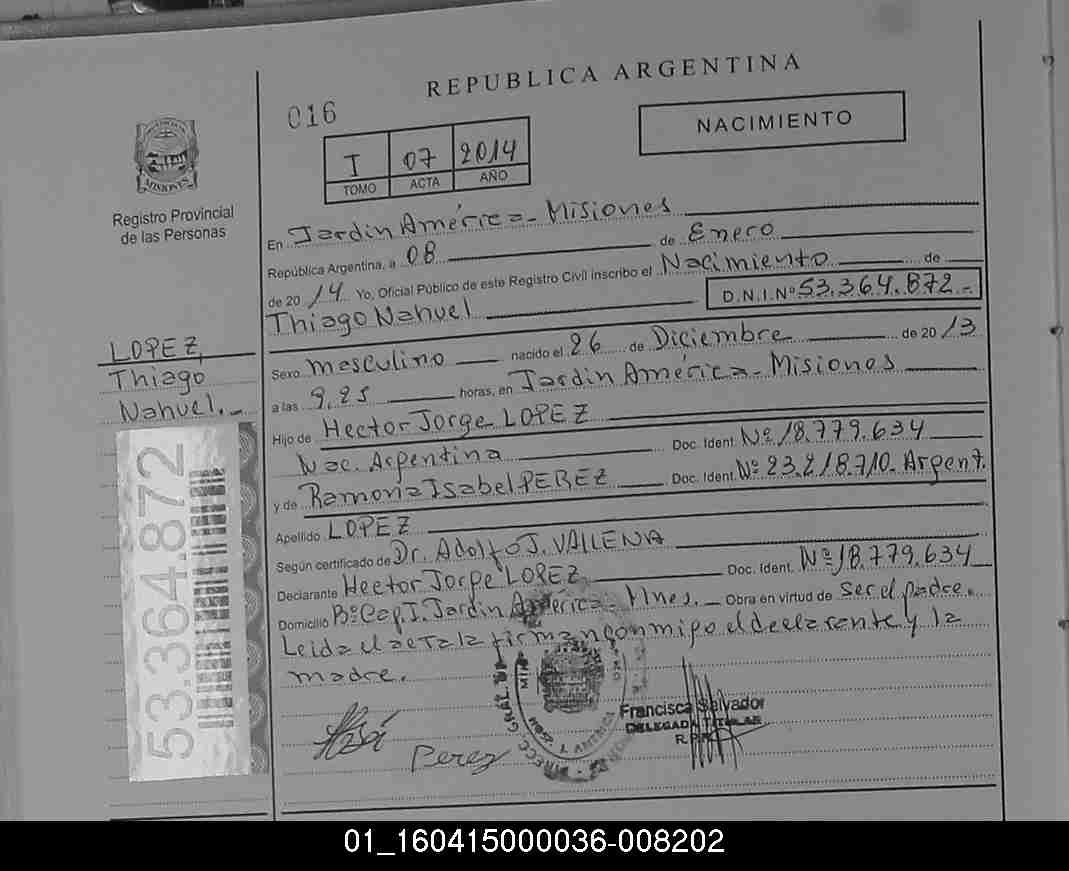 REPUBLICA ARGENTINA
016
NACIMIENTO
I 07 2014
TOMO ACTA AÑO
MISIONES
Registro Provincial
de las Personas
En Jardin América - Misiones
República Argentina, a 08 de Enero
de 20 14 Yo, Oficial Público de este Registro Civil inscribo el Nacimiento de
Thiago Nahuel D.N.I.Nº 53.364.872.-
LOPEZ,
Thiago
Nahuel.-
Sexo masculino nacido el 26 de Diciembre de 20 13
a las 9,25 horas, en Jardin América - Misiones
Hijo de Hector Jorge LOPEZ
Nac. Argentina Doc. Ident. Nº 18.779.634
y de Ramona Isabel PEREZ Doc. Ident. Nº 23.218.710. Argent.
Apellido LOPEZ
Según certificado de Dr. Adolfo J. VALLENA
Declarante Hector Jorge LOPEZ Doc. Ident. Nº 18.779.634
Domicilio Bº Cap. J. Jardin América - Mnes. - Obra en virtud de ser el padre.
Leida el acta la firman conmigo el declarante y la
madre.
53.364.872
Perez
Francisca Salvador
DELEGADA TITULAR
01_160415000036-008202